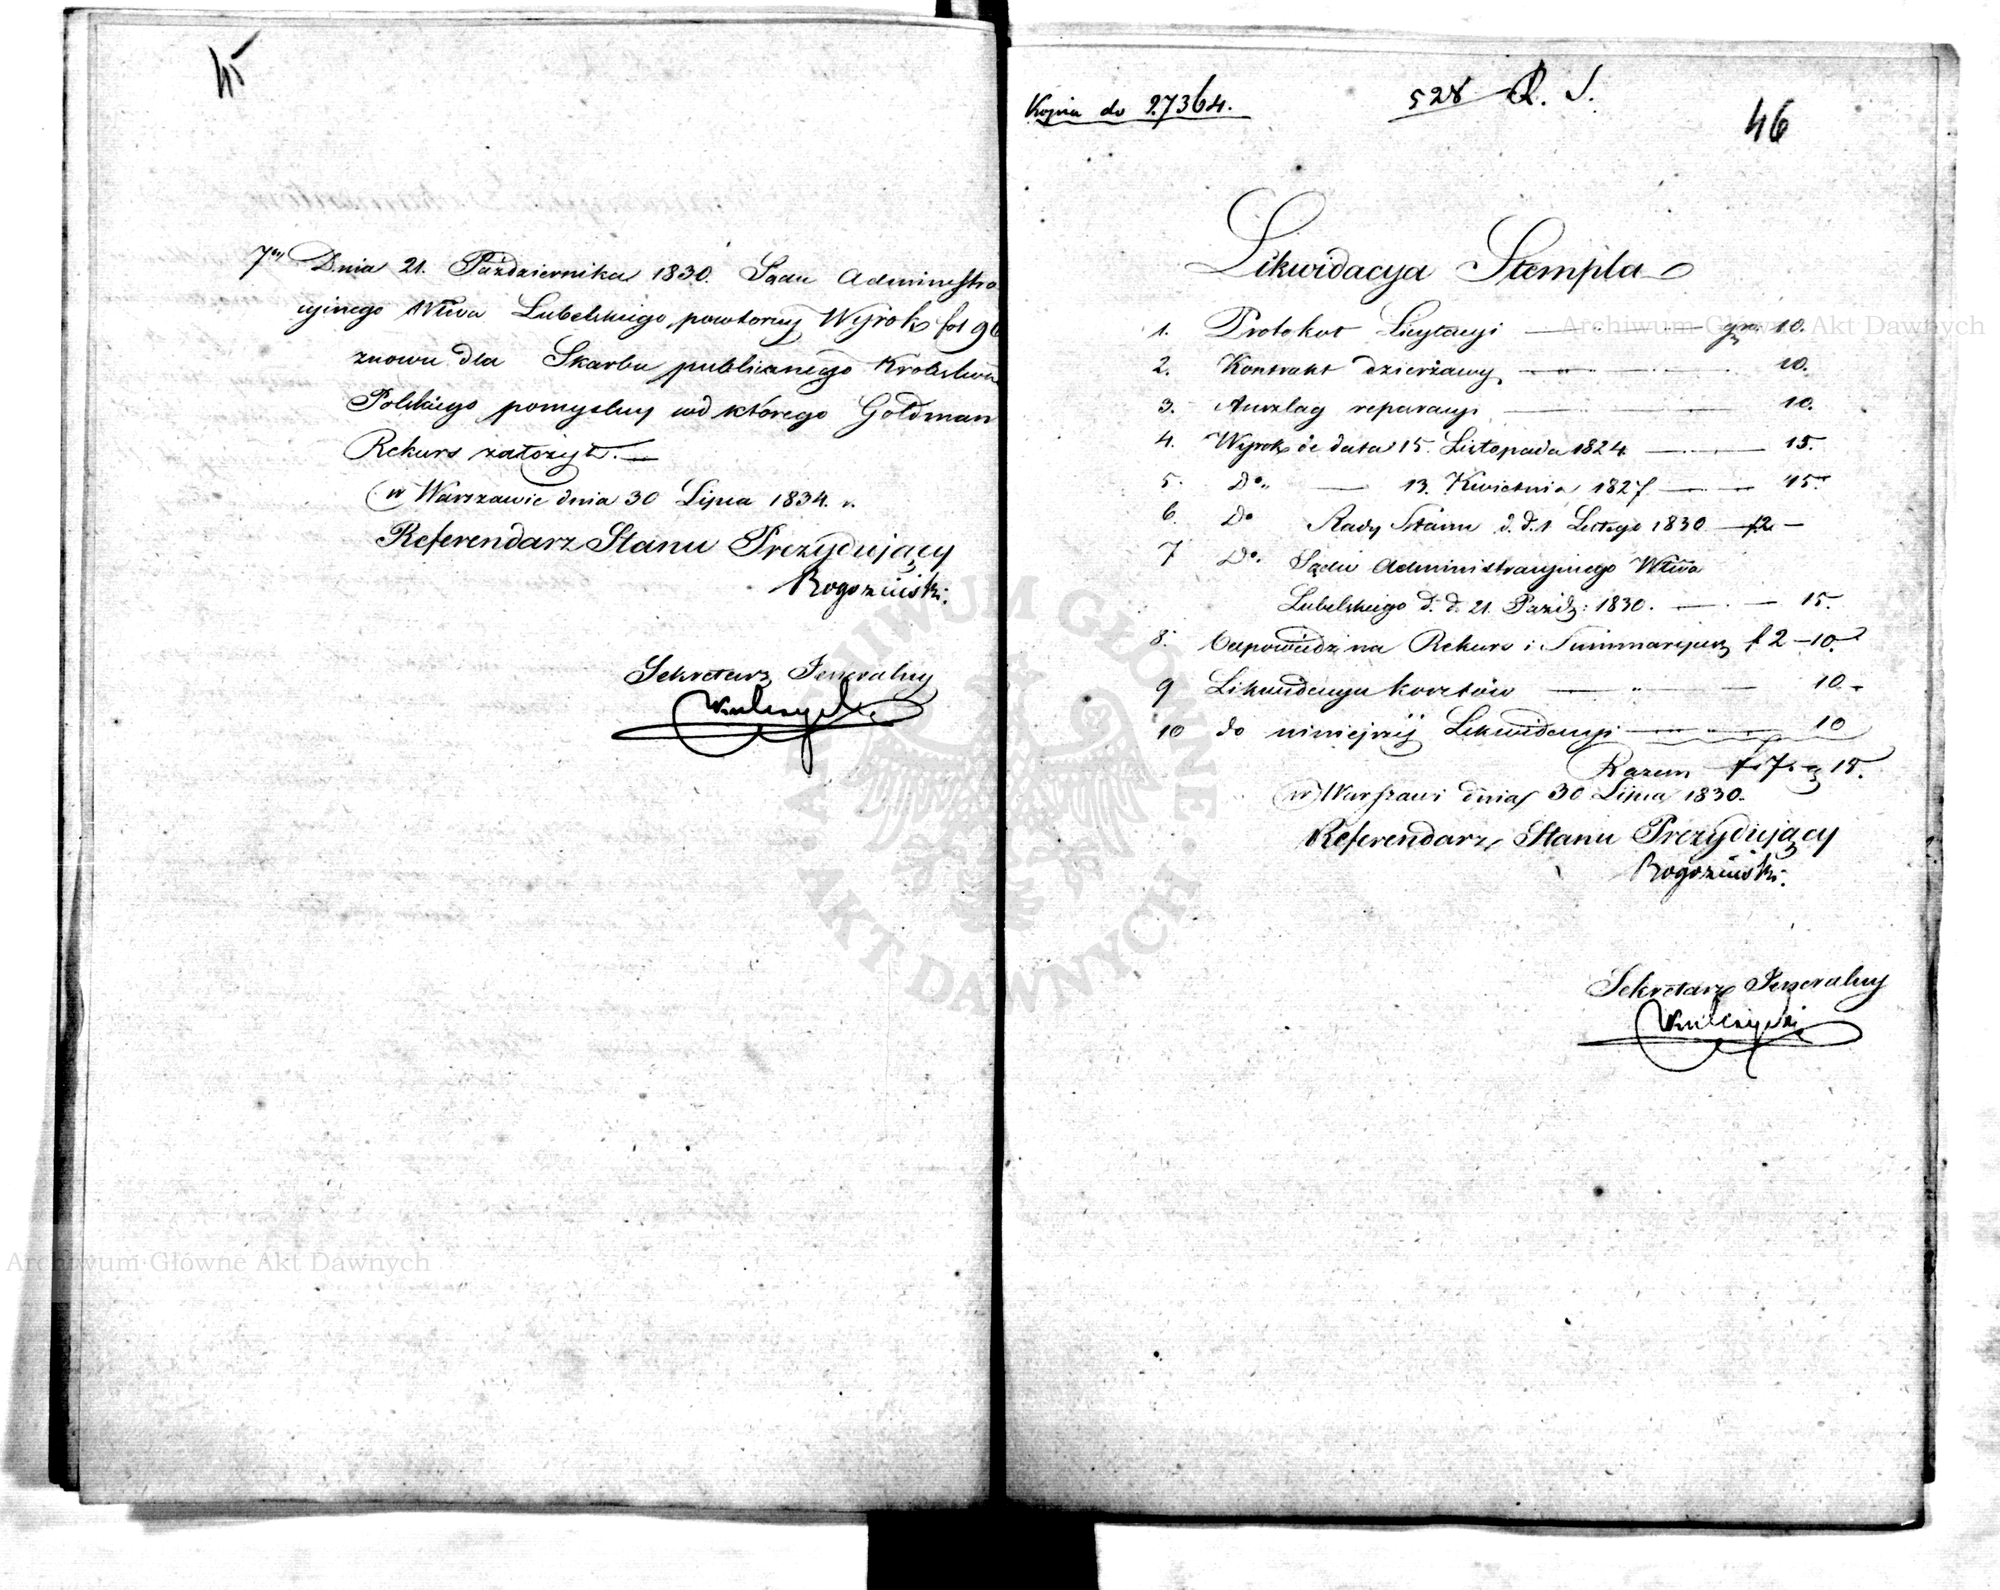 45
7m Dnia 21. Października 1830. Sądu Administra
cyjnego Wtwa Lubelskiego powtorny Wyrok fol 96
znowu dla Skarbu publicznego Krolestwa
Polskiego pomyslny od którego Goldman
Rekurs założył.
w Warszawie dnia 30 Lipca 1834. r.
Referendarz Stanu Prezydujący
Rogoziński.
Sekretarz Jeneralny
Kopia do 27364.
528 R. S.
46
Likwidacyja Stempla
1. Protokuł Licytacyi — gr. 10.
2. Kontrakt dzierżawy — „ — 10.
3. Anszlag reparacyi — 10.
4. Wyrok de data 15. Listopada 1824 — 15.
5. Do. — 13. Kwietnia 1827 — 15.
6. Do Rady Stanu d. d. 1 Lutego 1830 — f2 —
7 Do. Sądu Administracyjnego Wtwa
Lubelskiego d. d. 21. Paźdz: 1830. — 15.
8. Odpowiedz na Rekurs i Summaryusz f 2 — 10.
9 Likwidacyja kosztów — „ — 10.
10 do niniejszéj Likwidacyi — „ — 10
Razem f 7 g 15.
w Warszawi dnia 30 Lipca 1830.
Referendarz Stanu Prezydujący
Rogoziński.
Sekretarz Jeneralny
Archiwum Główne Akt Dawnych
Archiwum Główne Akt Dawnych
ARCHIWUM GŁÓWNE · AKT DAWNYCH ·